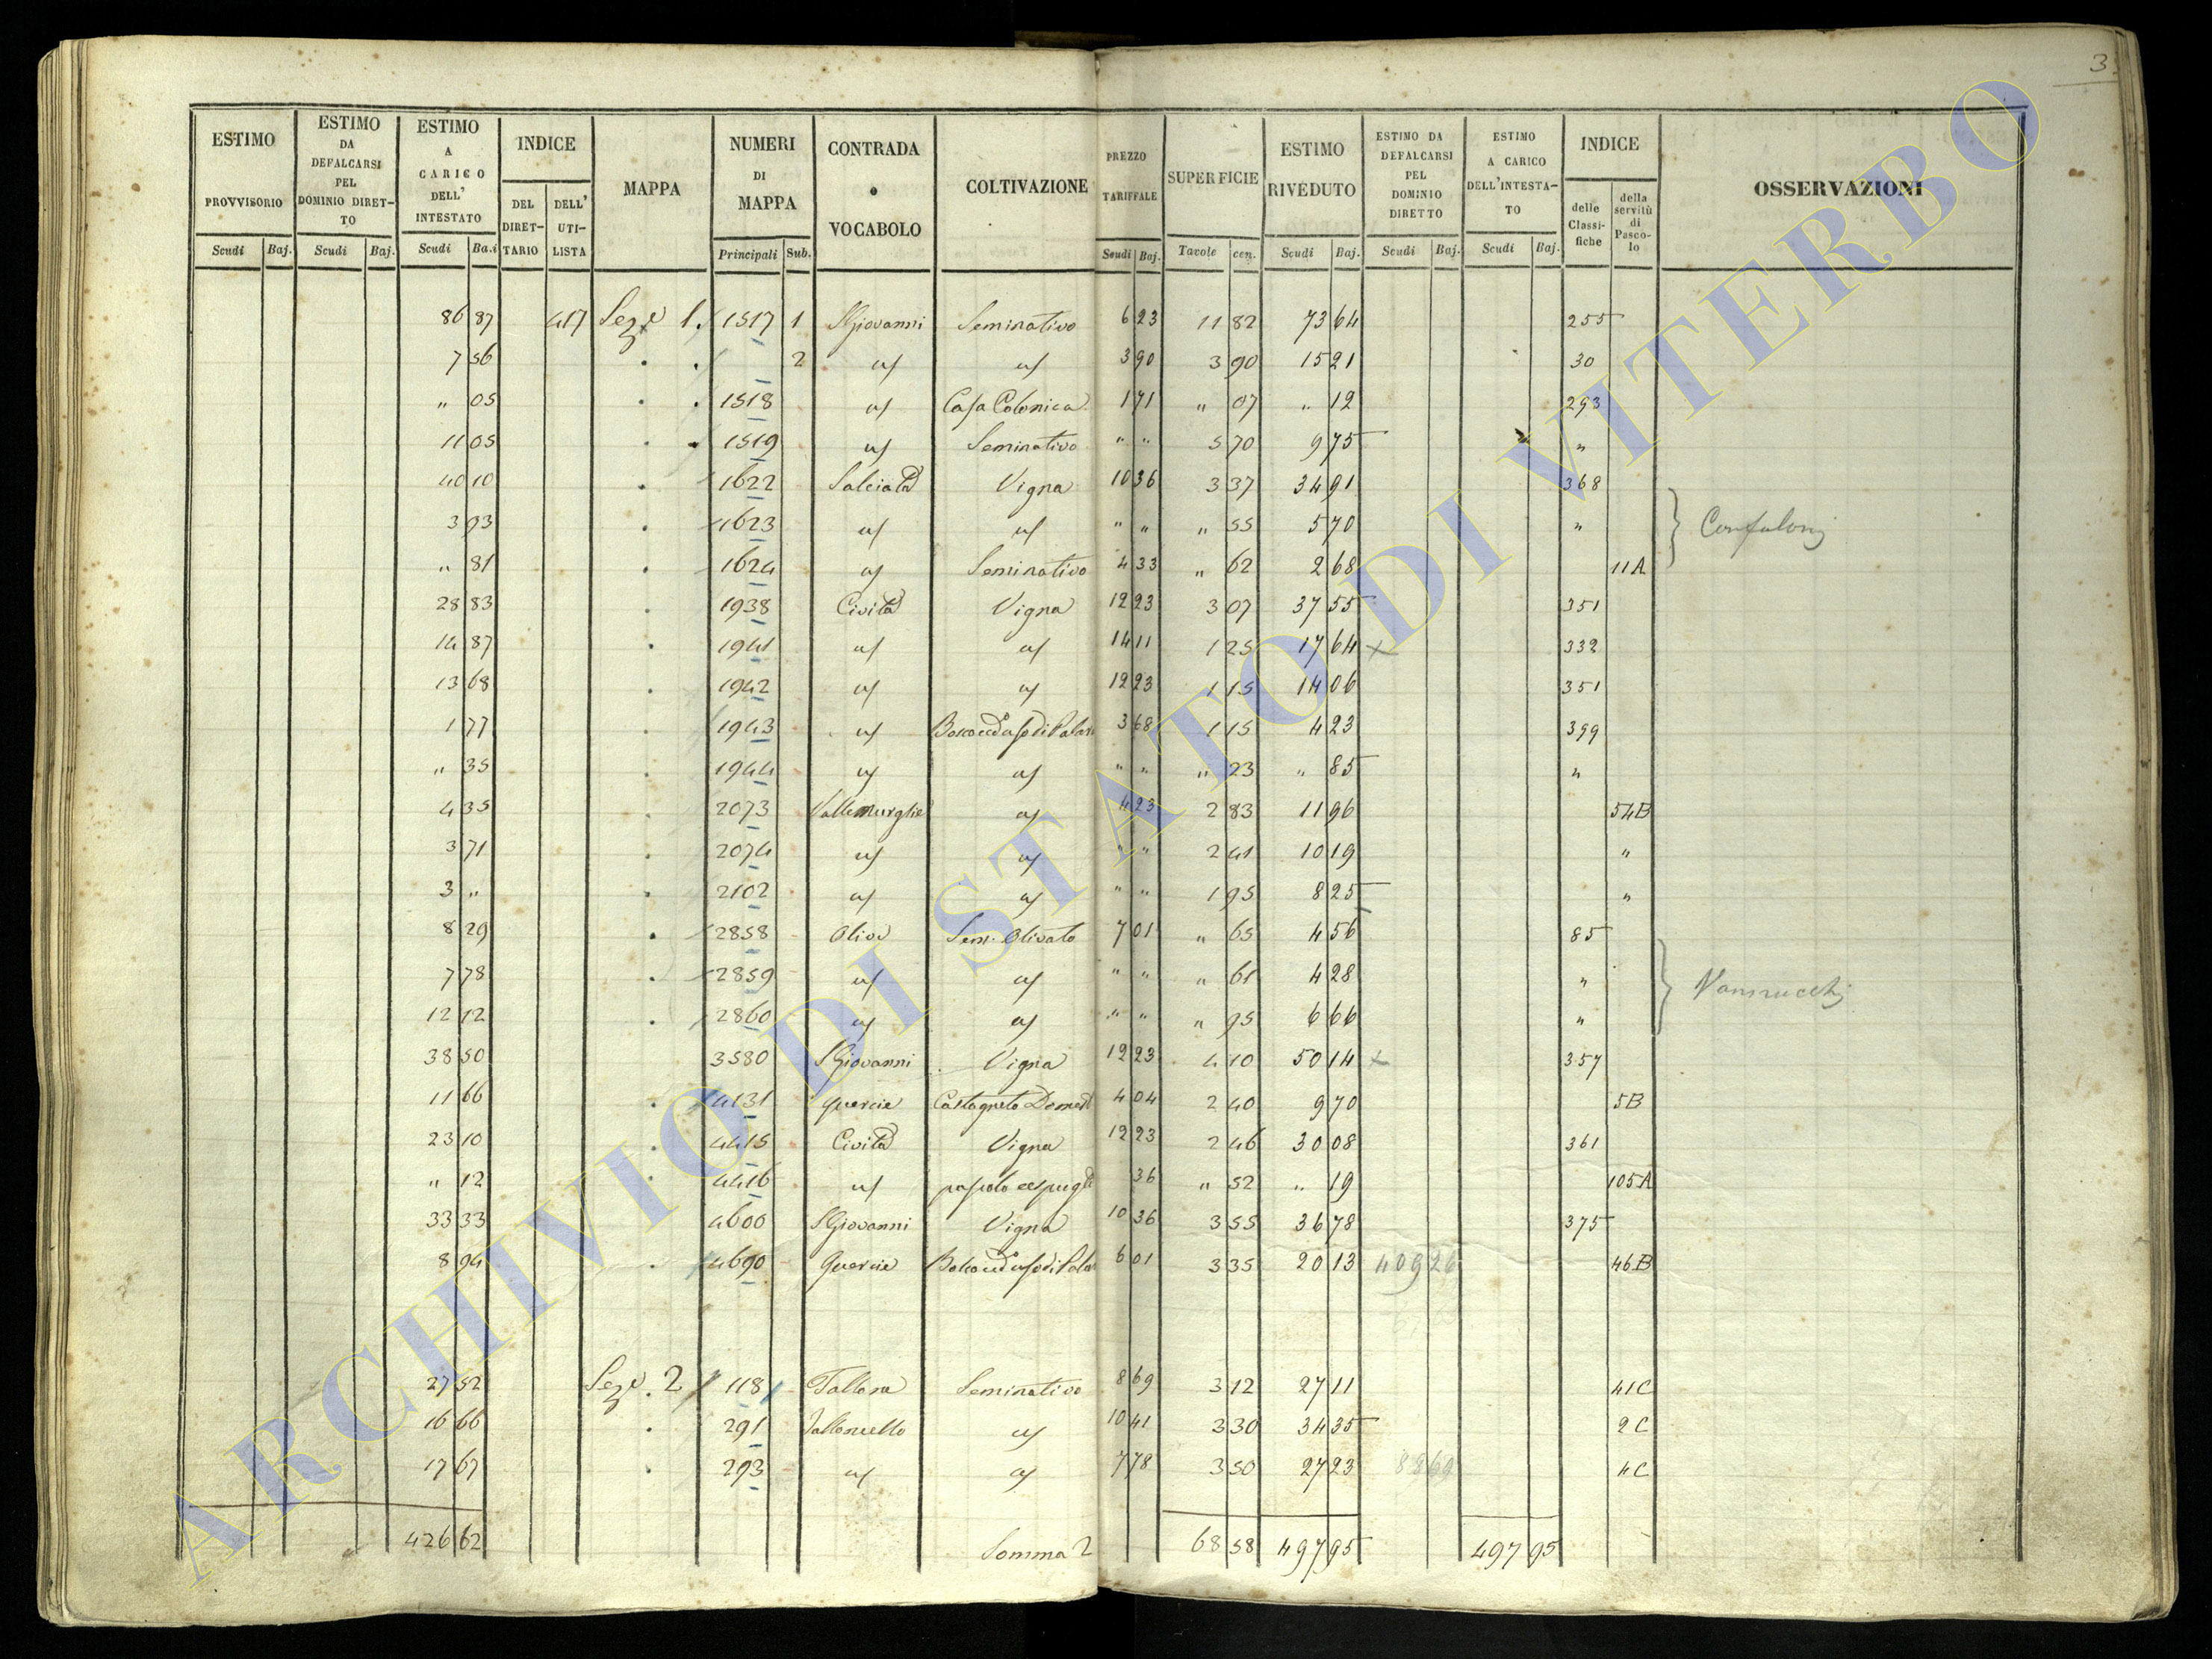 3
ESTIMO PROVVISORIO | ESTIMO DA DEFALCARSI PEL DOMINIO DIRETTO | ESTIMO A CARICO DELL' INTESTATO | INDICE | MAPPA | NUMERI DI MAPPA | CONTRADA o VOCABOLO | COLTIVAZIONE | PREZZO TARIFFALE | SUPERFICIE | ESTIMO RIVEDUTO | ESTIMO DA DEFALCARSI PEL DOMINIO DIRETTO | ESTIMO A CARICO DELL'INTESTATO | INDICE | OSSERVAZIONI
DEL DIRETTARIO | DELL' UTILISTA | delle Classifiche | della servitù di Pascolo
Scudi | Baj. | Scudi | Baj. | Scudi | Ba.i | Principali | Sub. | Scudi | Baj. | Tavole | cen. | Scudi | Baj. | Scudi | Baj. | Scudi | Baj.
86 87 417 Seze 1. 1517 1 SGiovanni Seminativo 6 23 11 82 73 64 255
7 56 . . 2 " " 3 90 3 90 15 21 30
" 05 . . 1518 " Casa Colonica 1 71 " 07 " 12 293
11 05 . . 1519 " Seminativo " " 5 70 9 75 "
40 10 . 1622 Salciata Vigna 10 36 3 37 34 91 368
3 93 . 1623 " " " " " 55 5 70 " Confaloni
" 81 . 1624 " Seminativo 4 33 " 62 2 68 11A
28 83 . 1938 Civita Vigna 12 23 3 07 37 55 351
14 87 . 1941 " " 14 11 1 25 17 64 × 332
13 68 . 1942 " " 12 23 1 15 14 06 351
1 77 . 1943 " 3 68 1 15 4 23 399
" 35 . 1944 " " " " " 23 " 85 "
4 35 . 2073 Vallemurghe " 4 23 2 83 11 96 54B
3 71 . 2074 " " " " 2 41 10 19 "
3 " . 2102 " " " " 1 95 8 25 "
8 29 . 2858 Olivo Sem. Olivato 7 01 " 65 4 56 85
7 78 . 2859 " " " " " 61 4 28 " Vannucchj
12 12 . 2860 " " " " " 95 6 66 "
38 50 3580 SGiovanni Vigna 12 23 4 10 50 14 × 357
11 66 . 4131 Quercie Castagneto Domest 4 04 2 40 9 70 5B
23 10 . 4415 Civita Vigna 12 23 2 46 30 08 361
" 12 . 4416 " pascolo cespugt 36 " 52 " 19 105A
33 33 . 4600 SGiovanni Vigna 10 36 3 55 36 78 375
8 94 . 4690 Quercie 6 01 3 35 20 13 409 26 46B
27 52 Seze. 2 118 Tallona Seminativo 8 69 3 12 27 11 41C
16 66 . 291 Talloncello " 10 41 3 30 34 35 2C
17 67 . 293 " " 7 78 3 50 27 23 88 69 4C
426 62 Somma 2 68 58 497 95 497 95
ARCHIVIO DI STATO DI VITERBO